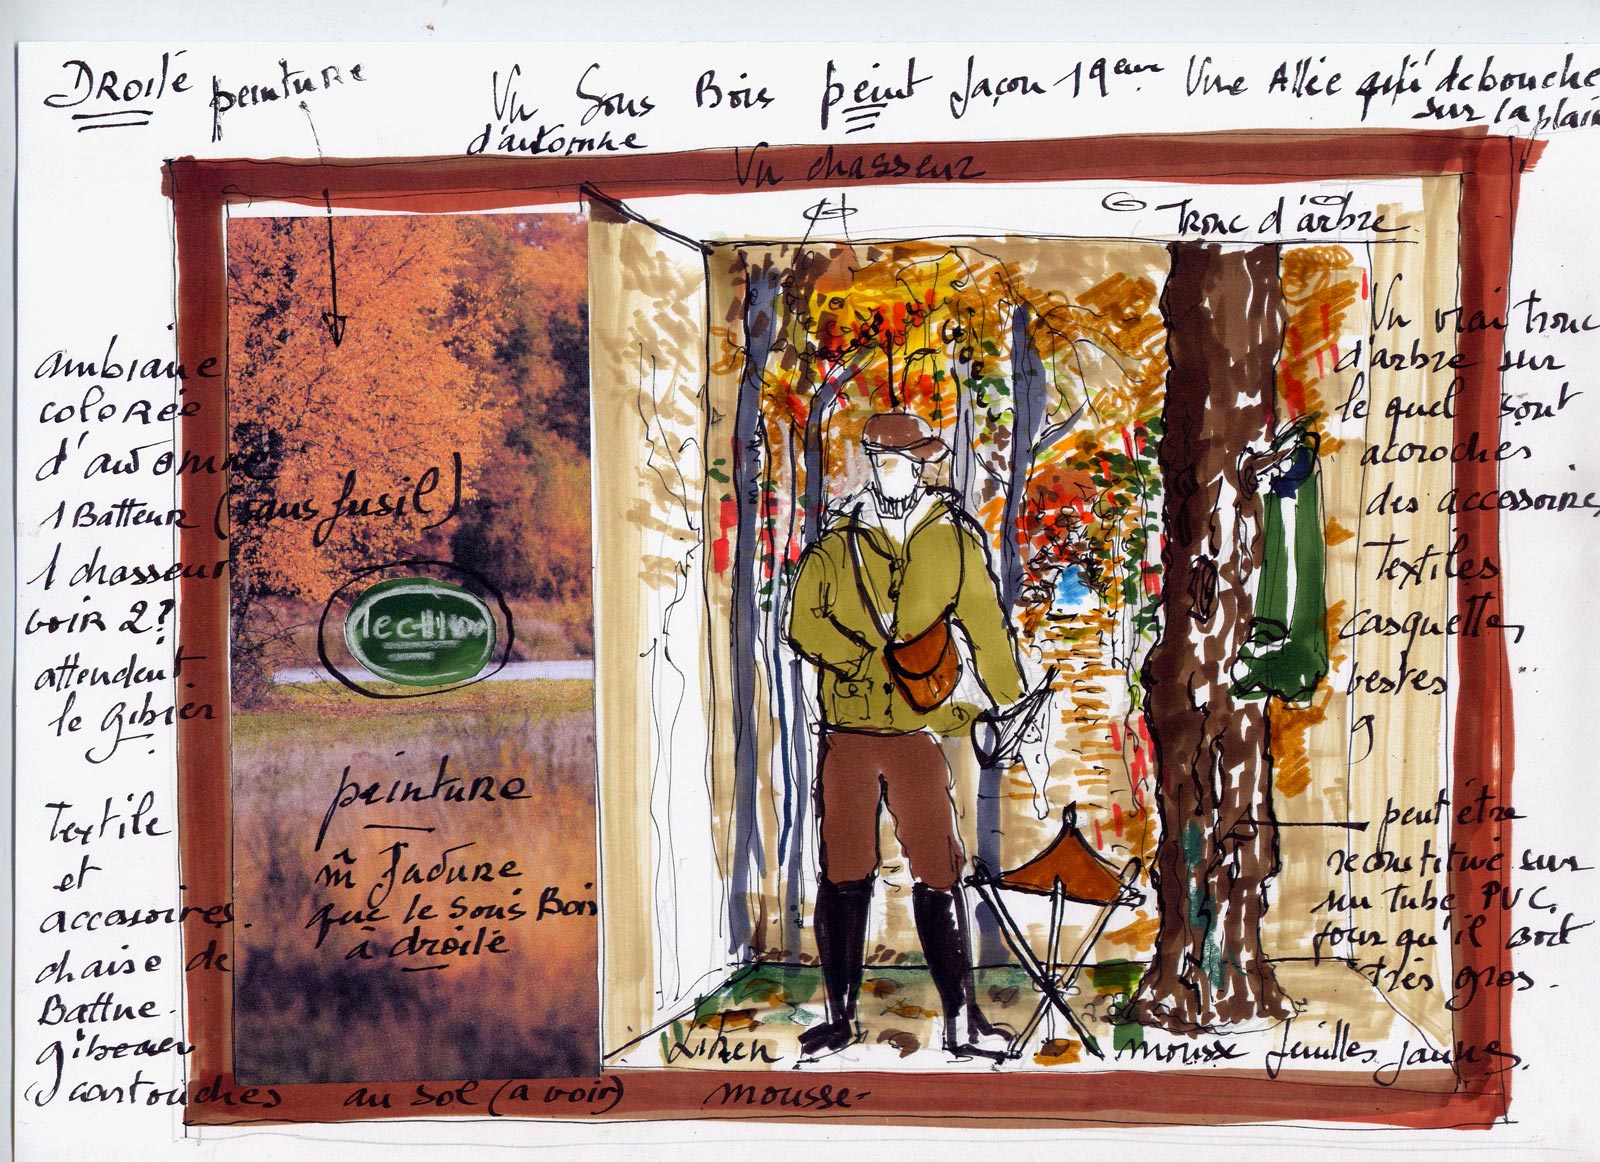 DROITE
peinture
Un Sous Bois peint façon 19eme Une Allée qui debouche
d'automne
sur la plain
Un chasseur
Tronc d'arbre
ambiance
colorée
d'automne
1 Batteur (sans fusil)
1 chasseur
voir 2?
attendent
le gibier
Textile
et
accessoires
chaise de
Battue
gibecier
cartouches au sol (a voir)
peinture
m̂ facture
que le sous Bois
à droite
Un vrai tronc
d'arbre sur
le quel sont
acoroches
des accessoires
Textiles
casquette,
vestes
g
peut être
reconstitué sur
un tube PVC.
pourqu'il soit
très gros.
Liken
mousse feuilles jaunes.
mousse-